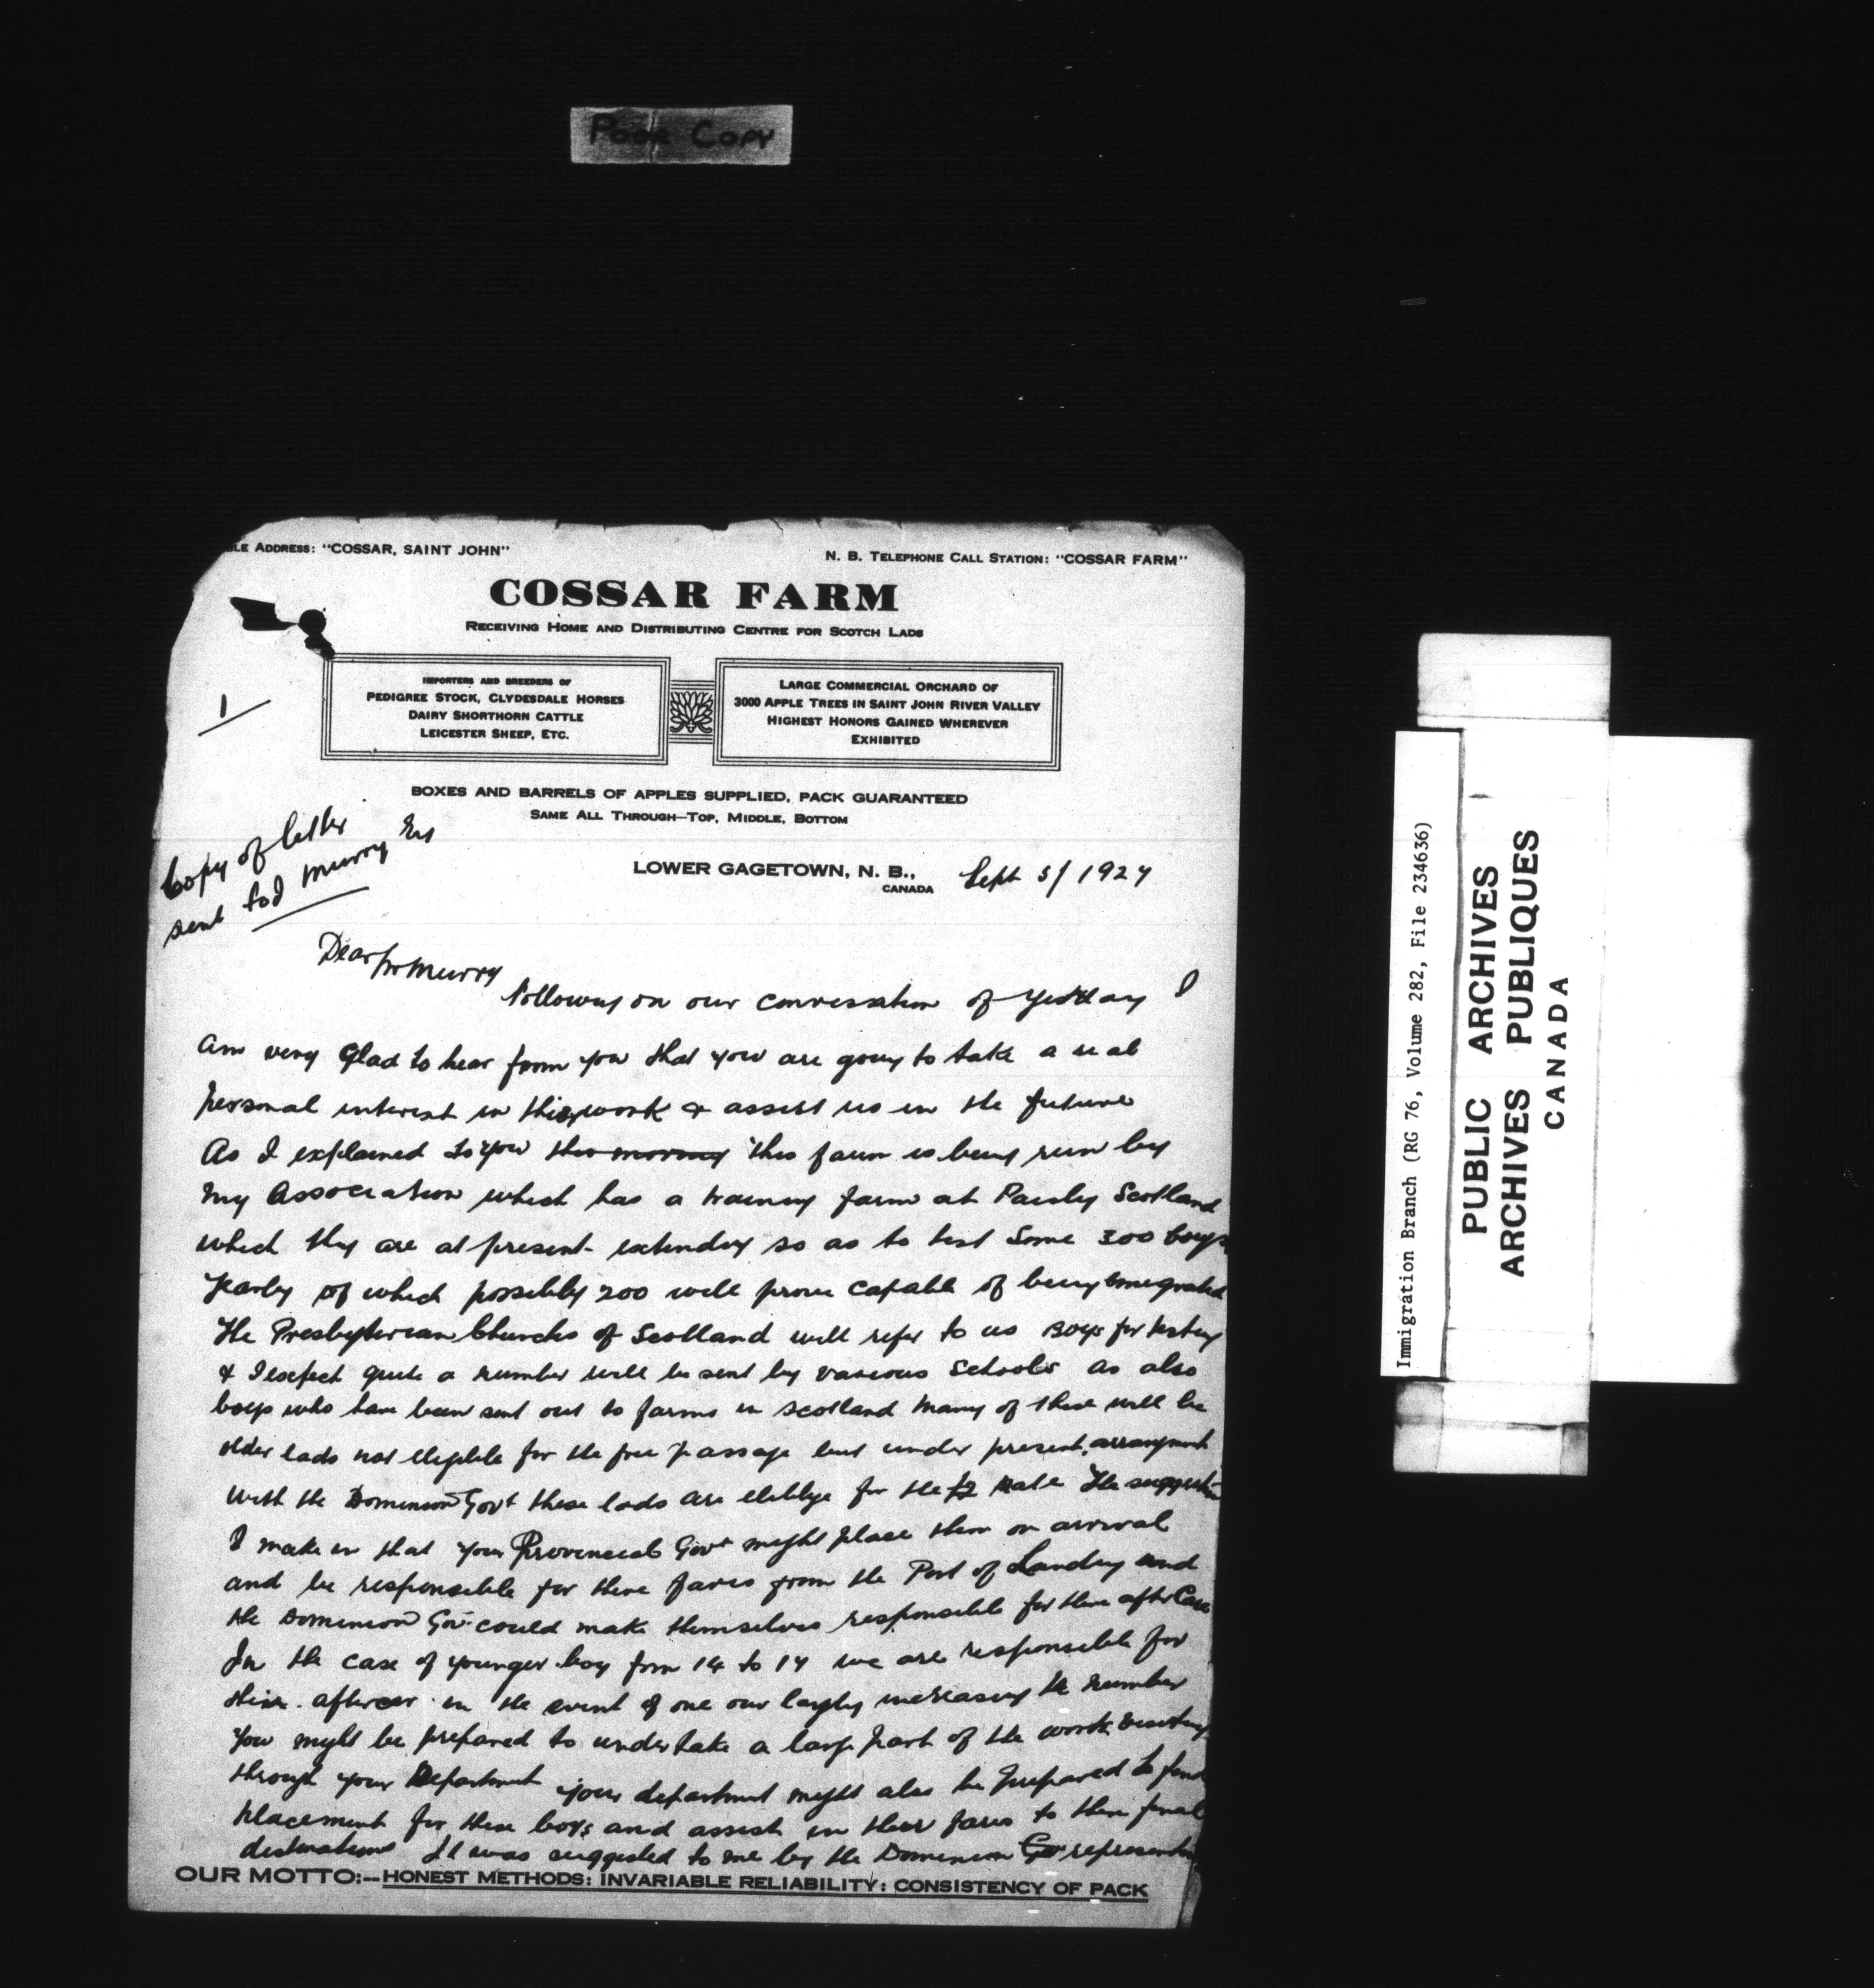 Poor Copy
LE ADDRESS: "COSSAR, SAINT JOHN"
N. B. TELEPHONE CALL STATION: "COSSAR FARM"
COSSAR FARM
RECEIVING HOME AND DISTRIBUTING CENTRE FOR SCOTCH LADS
IMPORTERS AND BREEDERS OF
PEDIGREE STOCK, CLYDESDALE HORSES
DAIRY SHORTHORN CATTLE
LEICESTER SHEEP, ETC.
LARGE COMMERCIAL ORCHARD OF
3000 APPLE TREES IN SAINT JOHN RIVER VALLEY
HIGHEST HONORS GAINED WHEREVER
EXHIBITED
1
BOXES AND BARRELS OF APPLES SUPPLIED, PACK GUARANTEED
SAME ALL THROUGH—TOP, MIDDLE, BOTTOM
Copy of letter
sent to Murry
LOWER GAGETOWN, N. B.,
CANADA
Sept 5/1927
Dear Mr Murry
Following on our conversation of yesterday I
am very glad to hear from you that you are going to take a real
personal interest in this work & assist us in the future
As I explained to you this morning this farm is being run by
my Association which has a training farm at Paisley Scotland
which they are at present extending so as to test some 300 boys
yearly of which possibly 200 will prove capable of being emigrated
The Presbyterian Churches of Scotland will refer to us Boys for testing
& I expect quite a number will be sent by various Schools as also
boys who have been sent out to farms in Scotland many of these will be
older lads not eligible for the free passage but under present arrangement
with the Dominion Govt these lads are eliblge for the £2 Rate The suggestion
I make is that your Provincial Govt might place them on arrival
and be responsible for there fares from the Port of Landing and
the Dominion Gov could make themselves responsible for there after Care
In the case of younger boy from 14 to 17 we are responsible for
their aftercar in the event of one our largly increasing the number
you might be prepared to undertake a large part of the work
through your Department your department might also be prepared to find
placement for these boys and assist in their fares to there final
destinations It was suggested to me by the Dominion Gov
OUR MOTTO:--HONEST METHODS: INVARIABLE RELIABILITY: CONSISTENCY OF PACK
Immigration Branch (RG 76, Volume 282, File 234636)
PUBLIC ARCHIVES
ARCHIVES PUBLIQUES
CANADA